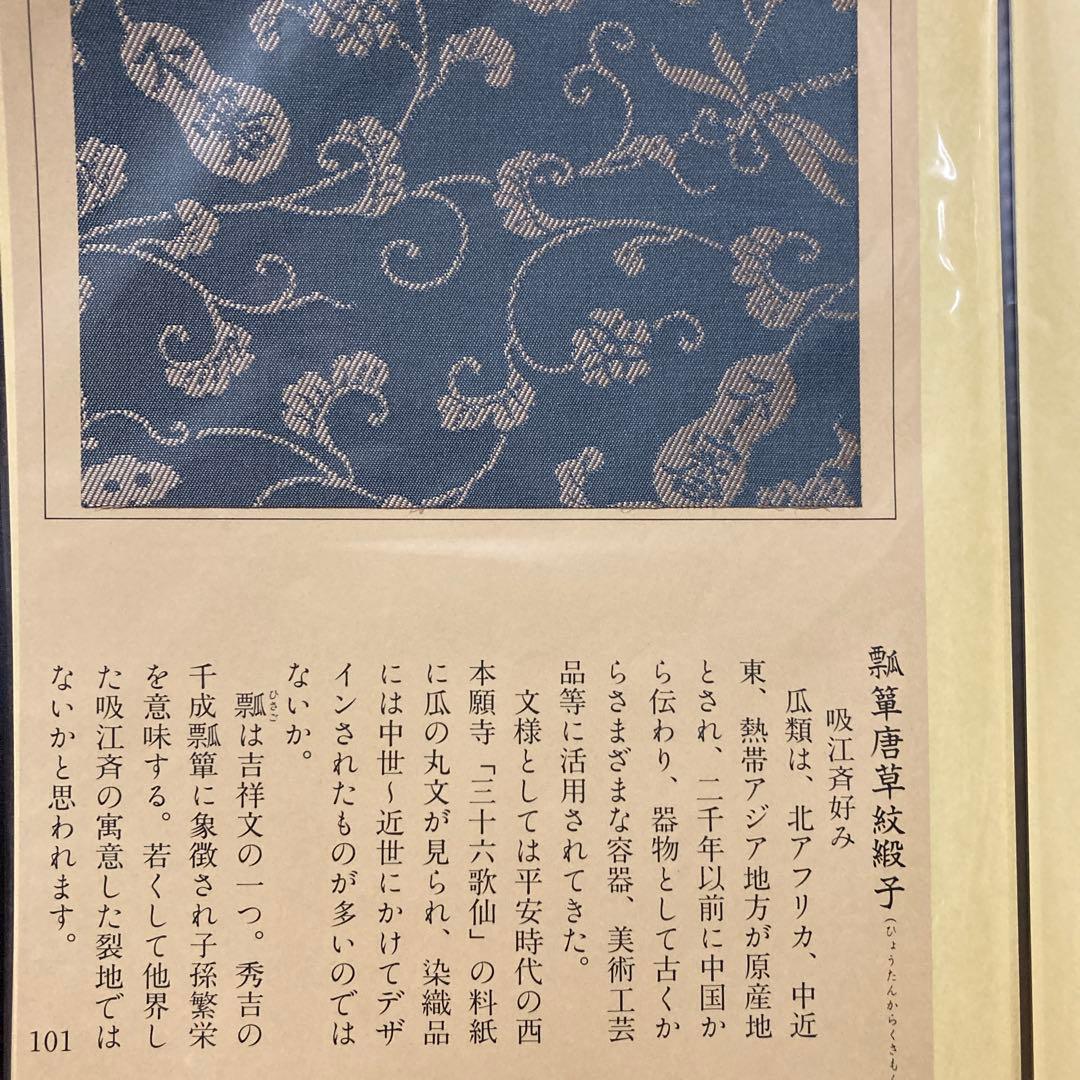 瓢箪唐草紋緞子(ひょうたんからくさも
吸江斉好み
瓜類は、北アフリカ、中近
東、熱帯アジア地方が原産地
とされ、二千年以前に中国か
ら伝わり、器物として古くか
らさまざまな容器、美術工芸
品等に活用されてきた。
文様としては平安時代の西
本願寺「三十六歌仙」の料紙
に瓜の丸文が見られ、染織品
には中世～近世にかけてデザ
インされたものが多いのでは
ないか。
瓢ひさごは吉祥文の一つ。秀吉の
千成瓢箪に象徴され子孫繁栄
を意味する。若くして他界し
た吸江斉の寓意した裂地では
ないかと思われます。
101